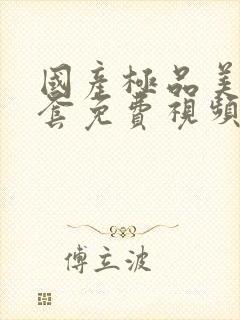 國產極品美
套免費視頻
傅立波